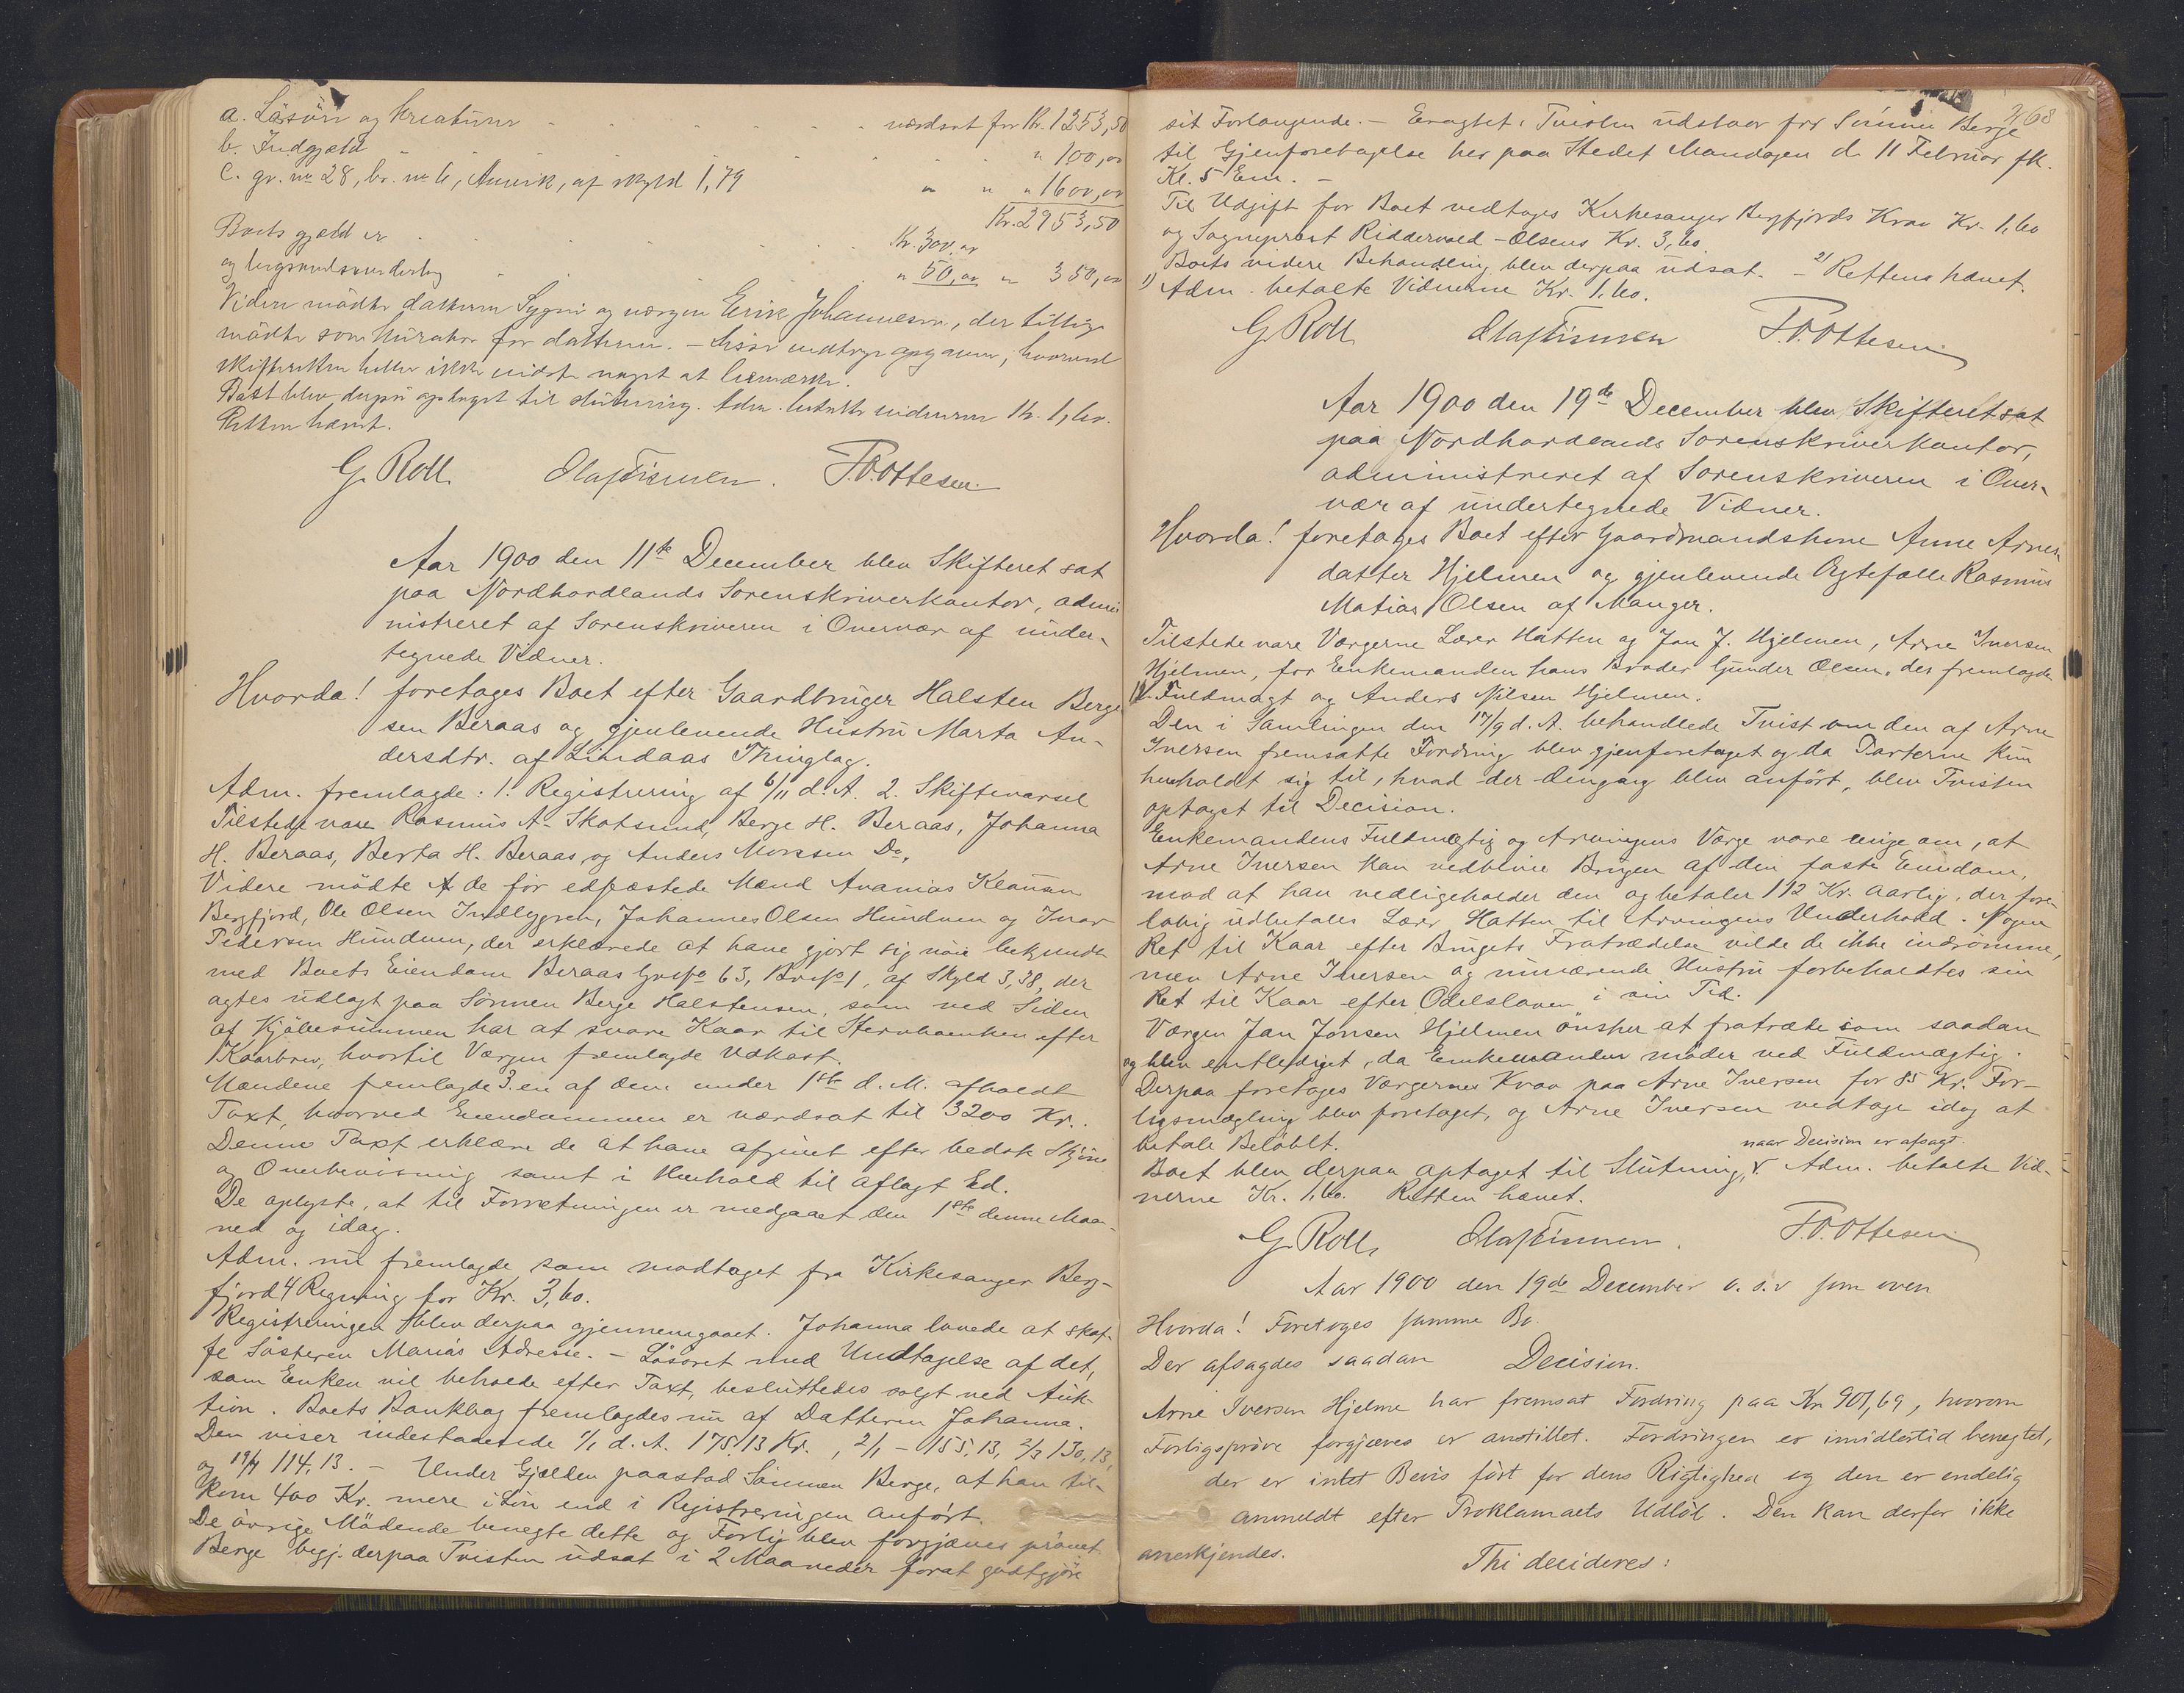 a. Løsøre og Kreaturer . . . . . . værdsat for Kr. 1253,50
b. Indgjæld . . . . . . . . " 100,00
c. gr. nr. 28, br. nr. 6, Annvik, af skyld 1,79 " " " 1600,00
Kr. 2953,50
Boets gjæld er . . . . . . Kr. 300,00
og begravelsesunderlag . . . " 50,00 " 350,00
Viden mødte datteren Sygni og værgen Erik Johannesen, der tillige
mødte som kurator for datteren. –
skifteretten heller ikke vidste noget at bemærke.
Boet blev derpå optaget til slutning. Adm. betalte vidnerne Kr. 1,60.
Retten hævet.
G. Roll Olaf Finnesen. F.O. Ottesen.
Aar 1900 den 11te December blev Skifteret sat
paa Nordhordlands Sorenskriverkontor, admi
nistreret af Sorenskriveren i Overvær af under-
tegnede Vidner.
Hvorda! foretoges Boet efter Gaardbruger Halsten Berge
sen Beraas og gjenlevende Hustru Marta An-
dersdtr. af Lindaas Thinglag.
Adm. fremlagde: 1. Registrering af 6/11 d. A. 2. Skiftevarsel
Tilstede vare Rasmus A. Skotsund, Berge H. Beraas, Johanna
H. Beraas, Berta H. Beraas og Anders Monsen Do.
Videre mødte de før edfæstede Mænd Ananias Klausen
Bergfjord, Ole Olsen Indlyggen, Johannes Olsen Hundven og Ivar
Pedersen Hundven, der erklærede at have gjort sig nøie bekjendt
med Boets Eiendom Beraas Gno 63, Bno 1, af Skyld 3,38, der
agtes udlagt paa Sønnen Berge Halstensen, som ved Siden
af Kjøbesummen har at svare Kaar til Stervboenken efter
Kaarbrev, hvortil Værgen fremlagde Udkast.
Mændene fremlagde 3. en af dem under 1ste d. M. afholdt
Taxt, hvorved Eiendommen er værdsat til 3200 Kr..
Denne Taxt erklære de at have afgivet efter bedste Skjøn
og Overbevisning samt i Henhold til aflagt Ed.
De oplyste, at til Forretningen er medgaaet den 1ste denne Maa-
ned og idag.
Adm. nu fremlagde som modtaget fra Kirkesanger Berg-
fjord 4 Regning for Kr. 3,60.
Registreringen blev derpaa gjennemgaaet. Johanna lovede at skaf-
fe Søsteren Marias Adresse. – Løsøret med Undtagelse af det,
som Enken vil beholde efter Taxt, besluttedes solgt ved Auk-
tion. Boets Bankbog fremlagdes nu af Datteren Johanna.
Den viser indestaaende 1/1 d. A. 175,13 Kr., 2/1 – 155,13, 2/3 130,13,
og 19/4 114,13. – Under Gjælden paastod Sønnen Berge, at han til-
kom 400 Kr. mere i Løn end i Registreringen anført.
De øvrige Mødende benegte dette og Forlig blev forgjæves prøvet.
Berge begj. derpaa Tvisten udsat i 2 Maaneder forat godtgjøre
268
sit Forlangende. – Eragtet: Tvisten udstaar for Sønnen Berge
til Gjenforetagelse her paa Stedet Mandagen d. 11 Februar fk.
Kl. 5 Em. –
Til Udgift for Boet vedtoges Kirkesanger Bergfjords Krav Kr. 1,60
og Sogneprest Riddervold-Olsens Kr. 3,60.
Boets videre Behandling blev derpaa udsat. – 2) Retten hævet.
1) Adm. betalte Vidnerne Kr. 1,60.
G Roll Olaf Finnesen F.O. Ottesen
Aar 1900 den 19de December blev Skifteret sat
paa Nordhordlands Sorenskriverkontor,
administreret af Sorenskriveren i Over-
vær af undertegnede Vidner.
Hvorda! foretoges Boet efter Gaardmandskone Anne Arnes
datter Hjelmen og gjenlevende Ægtefælle Rasmus
Matias Olsen af Manger.
Tilstede vare Værgerne Lærer Hatten og Jan J. Hjelmen, Arne Iversen
Hjelmen, for Enkemanden hans Broder Gunder Olsen, der fremlagde
12. Fuldmagt og Anders Nilsen Hjelmen.
Den i Samlingen den 17/9 d. A. behandlede Tvist om den af Arne
Iversen fremsatte Fordring blev gjenforetaget og da Parterne kun
henholdt sig til, hvad der dengang blev anført, blev Tvisten
optaget til Decision.
Enkemandens Fuldmægtig og Arvingens Værge vare enige om, at
Arne Iversen kan vedblive Brugen af den faste Eiendom,
mod at han vedligeholder den og betaler 112 Kr. aarlig, der fore-
løbig udbetales Lærer Hatten til Arvingens Underhold. Nogen
Ret til Kaar efter Brugets Fratrædelse vilde de ikke indrømme,
men Arne Iversen og nuværende Hustru forbeholdtes sin
Ret til Kaar efter Odelsloven i sin Tid.
Værgen Jan Jonsen Hjelmen ønsker at fratræde som saadan
og blev entlediget, da Enkemanden møder ved Fuldmægtig.
Derpaa foretoges Værgernes Krav paa Arne Iversen for 85 Kr. For-
ligsmægling blev foretaget, og Arne Iversen vedtage idag at
betale Beløbet.
naar Decision er afsagt.
Boet blev derpaa optaget til Slutning, Adm. betalte Vid-
nerne Kr. 1,60. Retten hævet.
G. Roll, Olaf Finnesen. F.O. Ottesen
Aar 1900 den 19de December o. s. v som oven
Hvorda! Foretoges samme Bo.
Der afsagdes saadan Decision.
Arne Iversen Hjelme har fremsat Fordring paa Kr 901,69, hvorom
Forligsprøve forgjæves er anstillet. Fordringen er imidlertid benegtet,
der er intet Bevis ført for dens Rigtighed og den er endelig
anmeldt efter Proklamaets Udløb. Den kan derfor ikke
anerkjendes.
Thi decideres: